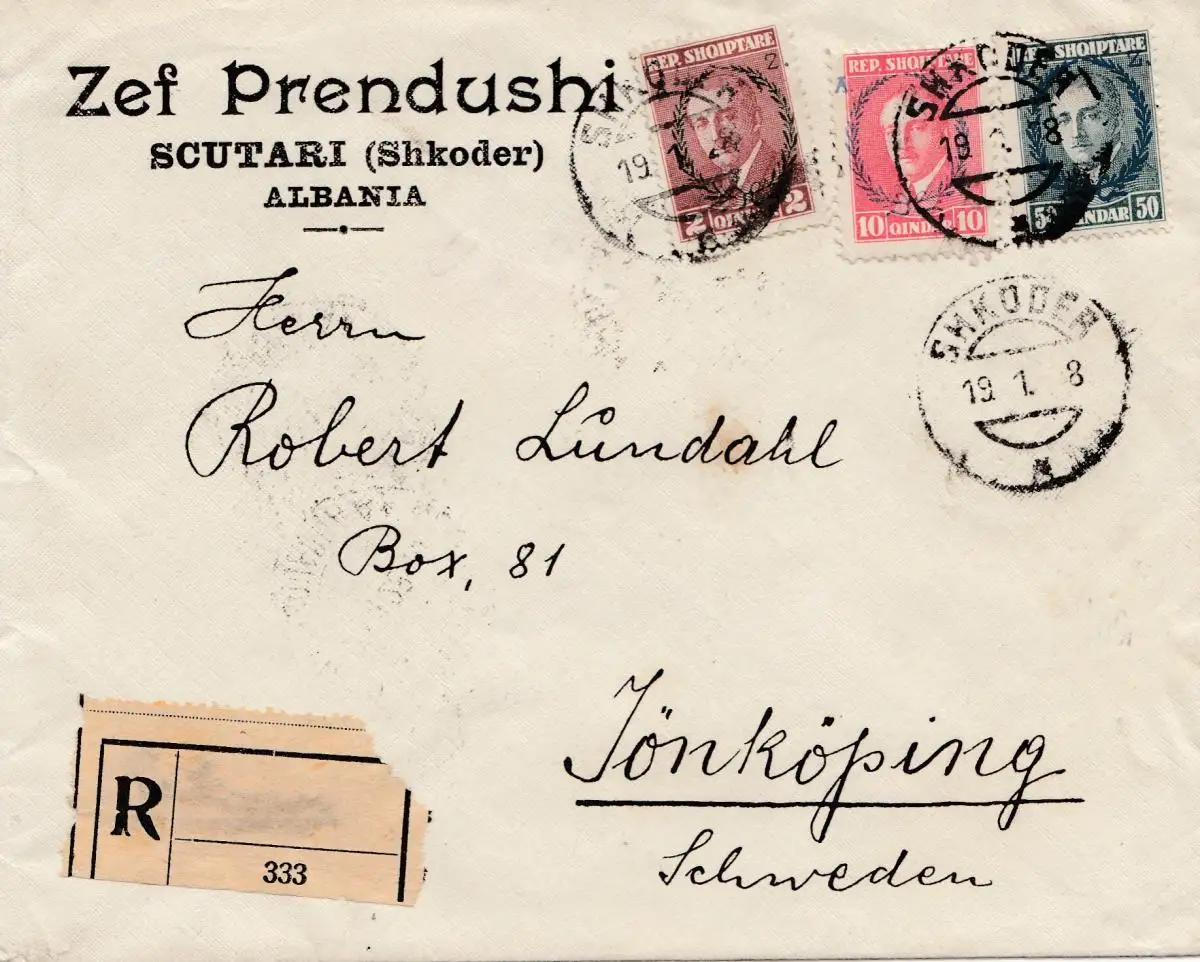 Zef Prendushi
SCUTARI (Shkoder)
ALBANIA
REP. SHQIPTARE
2 QINDAR 2
REP. SHQIPTARE
10 QINDAR 10
REP. SHQIPTARE
50 QINDAR 50
SHKODER
19 1 28
SHKODER
19 1 8
SHKODER
19. 1. 8
Herrn
Robert Lundahl
Box, 81
Jönköping
Schweden
R
333